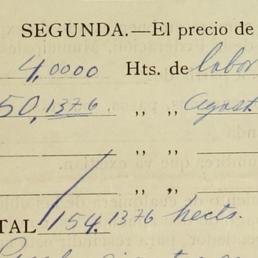 SEGUNDA.—El precio de
4,0000 Hts. de labor
50,1376 „ „ agost
„ „
„ „
TAL 154,1376 hects.